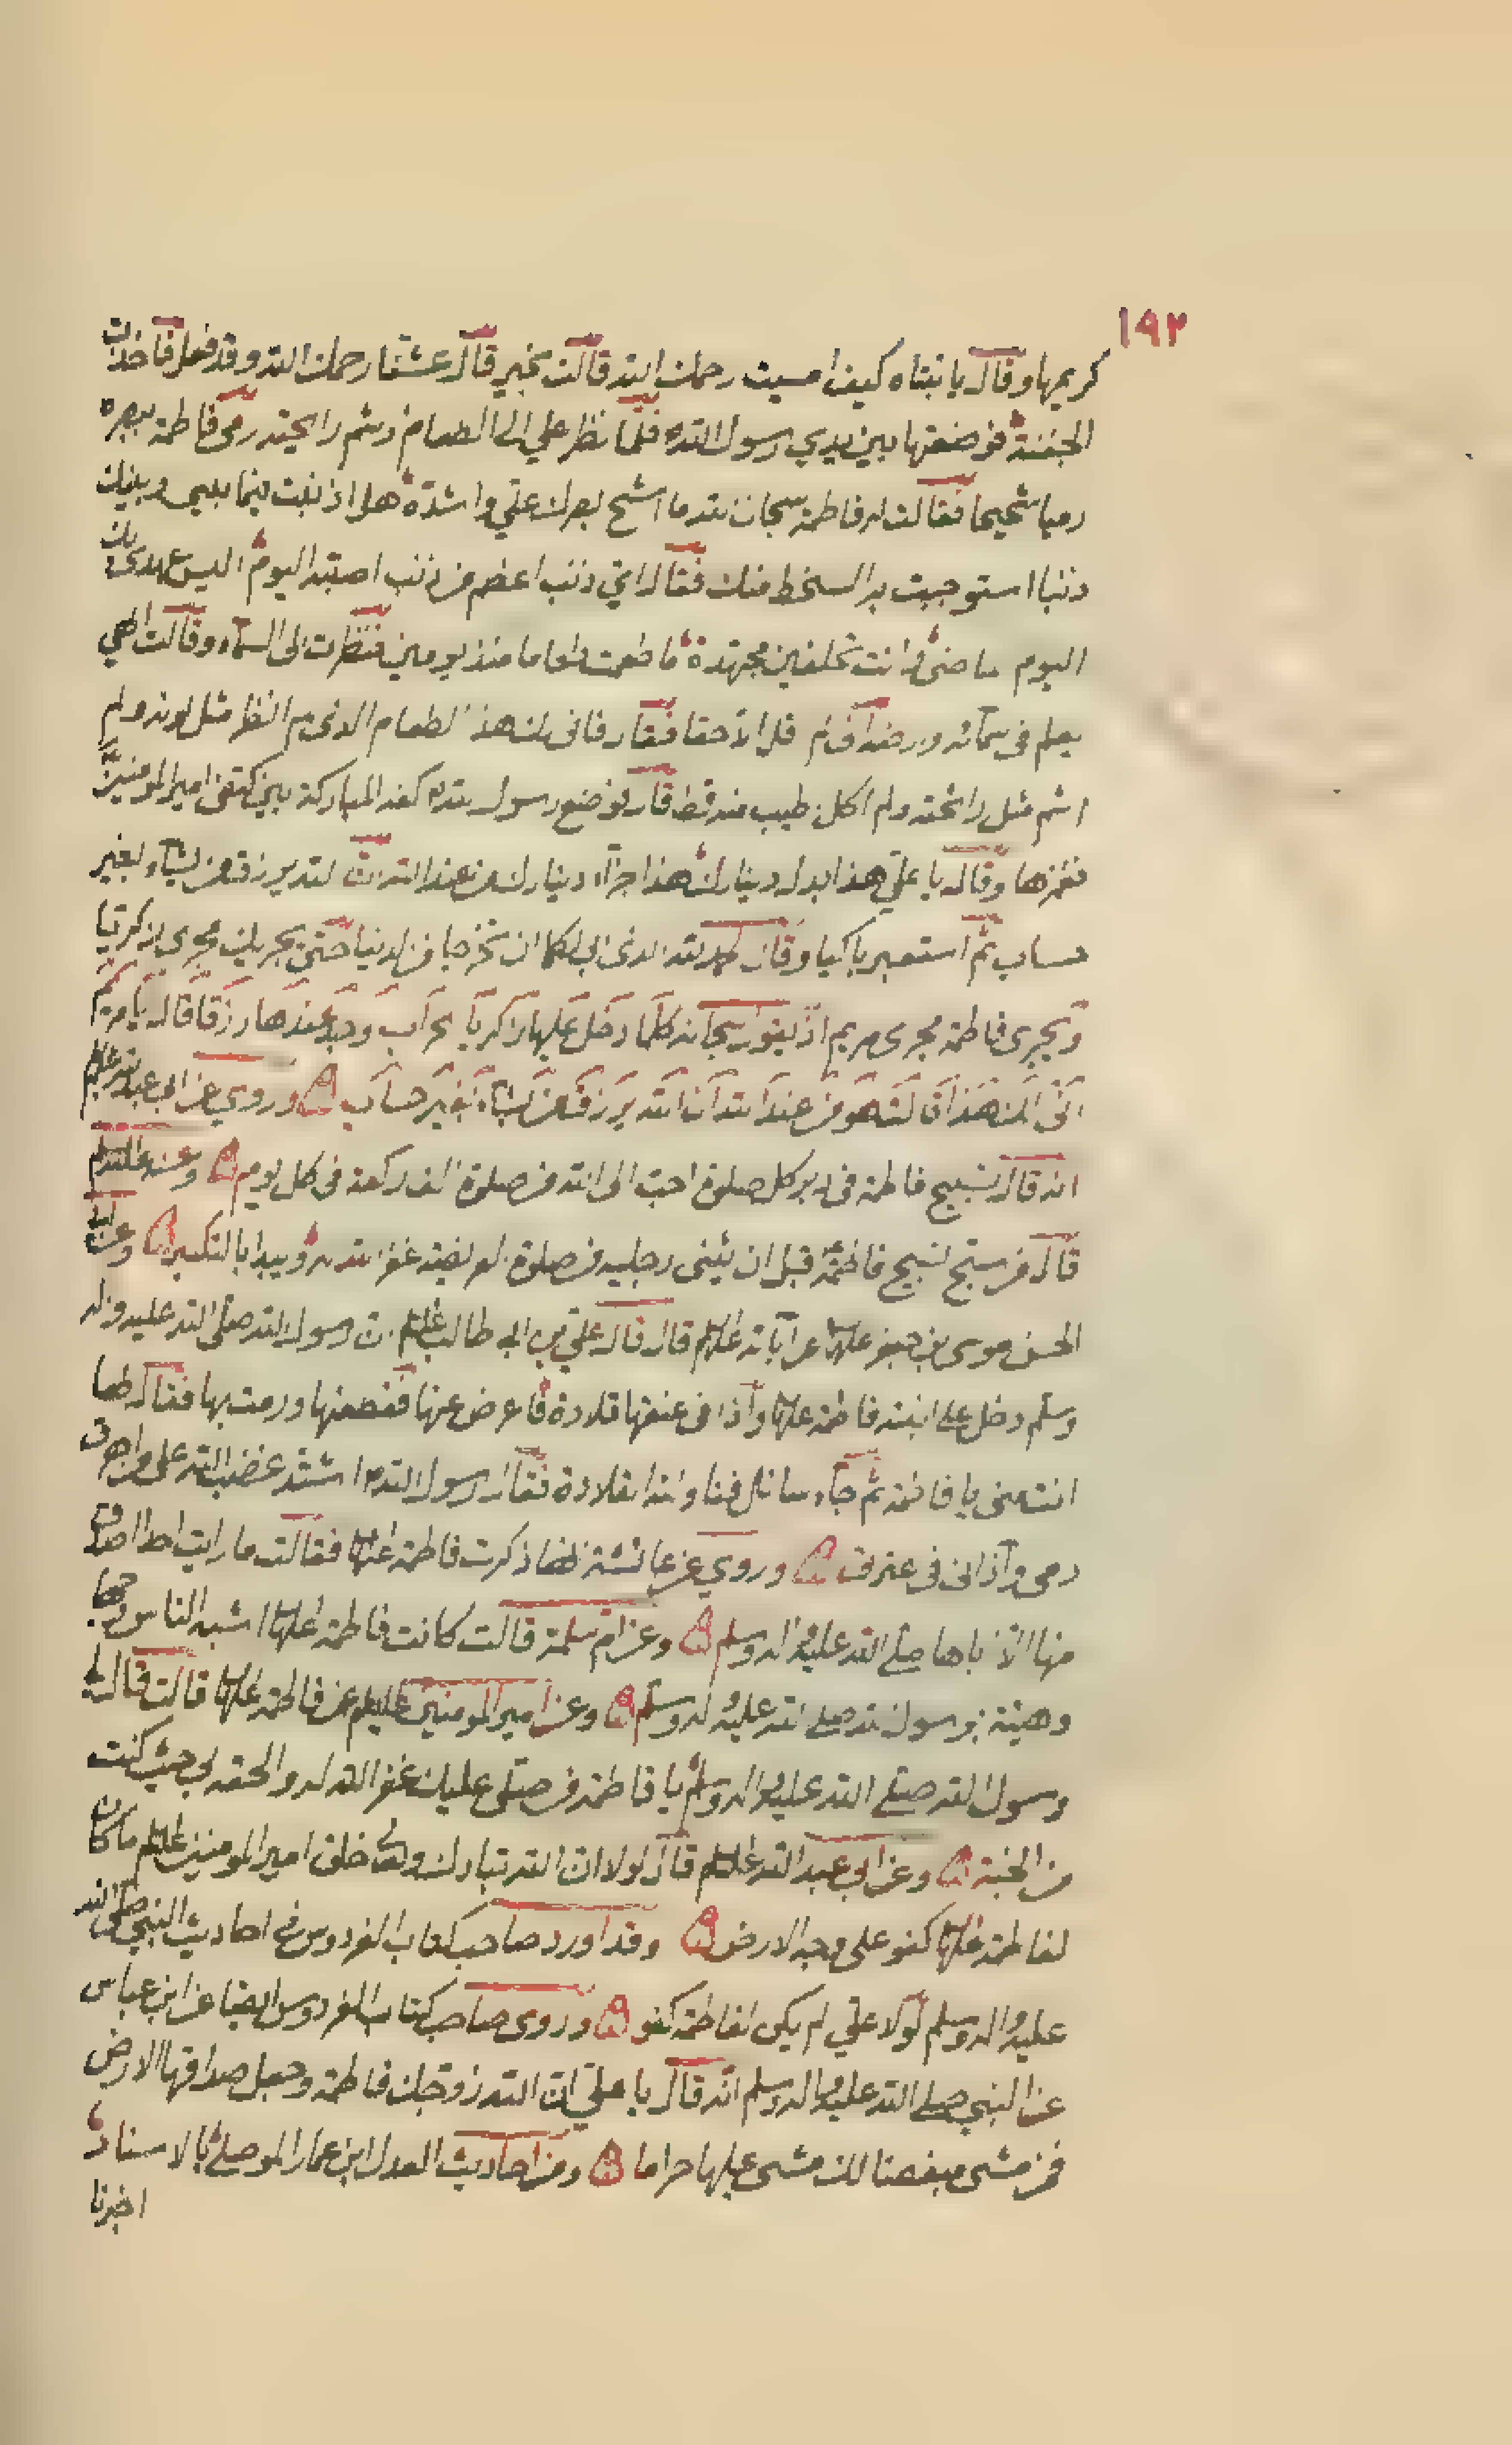 ١٩٢
كريمها وقال يا بنتاه كيف امسيت رحمك الله قالت بخير قال عشقا رحمك الله وقد فعل فاخذت
الجفنة فوضعتها بين يدي رسول الله فلما نظر علي الى الطعام وشم رايحته رمى فاطمة ببصره
رميا شحيحا فقالت له فاطمة سبحان الله ما اشح بصرك علي واشده هل اذنبت فيما بيني وبينك
ذنبا استوجبت به السخط منك فقال اي ذنب اعظم من ذنب اصبته اليوم اليس عهدي بك
اليوم ماضي وانت تحلفين مجتهدة ما طعمت طعاما منذ يومين فنظرت الى السماء وقالت الهي
يعلم في سمائه وارضه اني لم اقل الا حقا فقال فاني لك هذا الطعام الذي لم انظر مثل لونه ولم
اشم مثل رائحته ولم اكل طيب منه قط قال فوضع رسول الله كفه المباركة بين كتفي امير المؤمنين
فغمزها وقال يا علي هذا بدل دينارك هذا جزاء دينارك من عند الله ان الله يرزق من يشاء بغير
حساب ثم استعبر باكيا وقال الحمد لله الذي ابى لكما ان تخرجا من الدنيا حتى يجريك مجرى زكريا
ويجري فاطمة مجرى مريم اذ يقول سبحانه كلما دخل عليها زكريا المحراب وجد عندها رزقا قال يا مريم
انى لك هذا قالت هو من عند الله ان الله يرزق من يشاء بغير حساب وروي عن ابي عبد الله عليه السلم
انه قال تسبيح فاطمة في دبر كل صلوة احب الى الله من صلوة الف ركعة في كل يوم وعنه عليه السلم
قال من سبح تسبيح فاطمة قبل ان يثني رجليه من صلوة الفريضة غفر الله له ويبدا بالتكبير وعن ابي
الحسن موسى بن جعفر عليهما السلم عن آبائه عليهم السلم قال قال علي بن ابي طالب عليه السلم ان رسول الله صلى الله عليه واله
وسلم دخل على ابنته فاطمة عليها السلم واذا في عنقها قلادة فاعرض عنها فقطعتها ورمت بها فقال لها
انت مني يا فاطمة ثم جاء سائل فناولته القلادة فقال رسول الله اشتد غضب الله على من اهرق
دمي وآذاني في عترتي وروي عن عائشة انها ذكرت فاطمة عليها السلم فقالت ما رايت احدا اصدق
منها الا اباها صلى الله عليه واله وسلم وعن ام سلمة قالت كانت فاطمة عليها السلم اشبه الناس وجها
وهيئة برسول الله صلى الله عليه واله وسلم وعن امير المؤمنين عليه السلم عن فاطمة عليها السلم قالت قال لي
رسول الله صلى الله عليه واله وسلم يا فاطمة من صلى عليك غفر الله له والحقه بي حيث كنت
من الجنة وعن ابي عبد الله عليه السلم قال لولا ان الله تبارك وتعالى خلق امير المؤمنين عليه السلم ما كان
لفاطمة عليها السلم كفو على وجه الارض وقد اورد صاحب كتاب الفردوس في احاديث النبي صلى الله
عليه واله وسلم لولا علي لم يكن لفاطمة كفو وروى صاحب كتاب الفردوس ايضا عن ابن عباس
عن النبي صلى الله عليه واله وسلم انه قال يا علي ان الله زوجك فاطمة وجعل صداقها الارض
فمن مشى مبغضا لك مشى عليها حراما ومن احاديث العدل ابن عمار الموصلي بالاسناد
اخبرنا